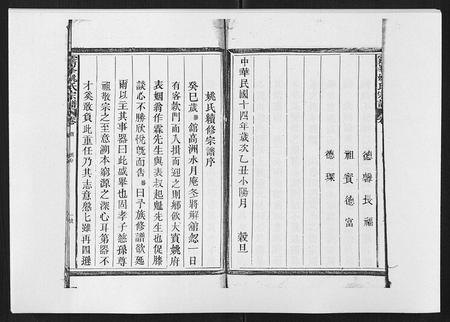 德馨 長福
祖實 德富
德琛
中華民國十四年歲次乙丑小陽月 穀旦
姚氏續修宗譜序
癸巳歲 館高洲水月庵冬將解館忽一日
有客款門而入揖而迎之則鄉飲大賓姚府
表姻翁作霖先生與表叔起魁先生也促膝
談心不勝欣悅旣而告 曰予族修譜欲延
爾以主其事器曰此盛舉也固孝子慈孫尊
祖敬宗之至意溯本窮源之深心耳第器不
才奚敢負此重任乃其志意殷匕雖再四遜